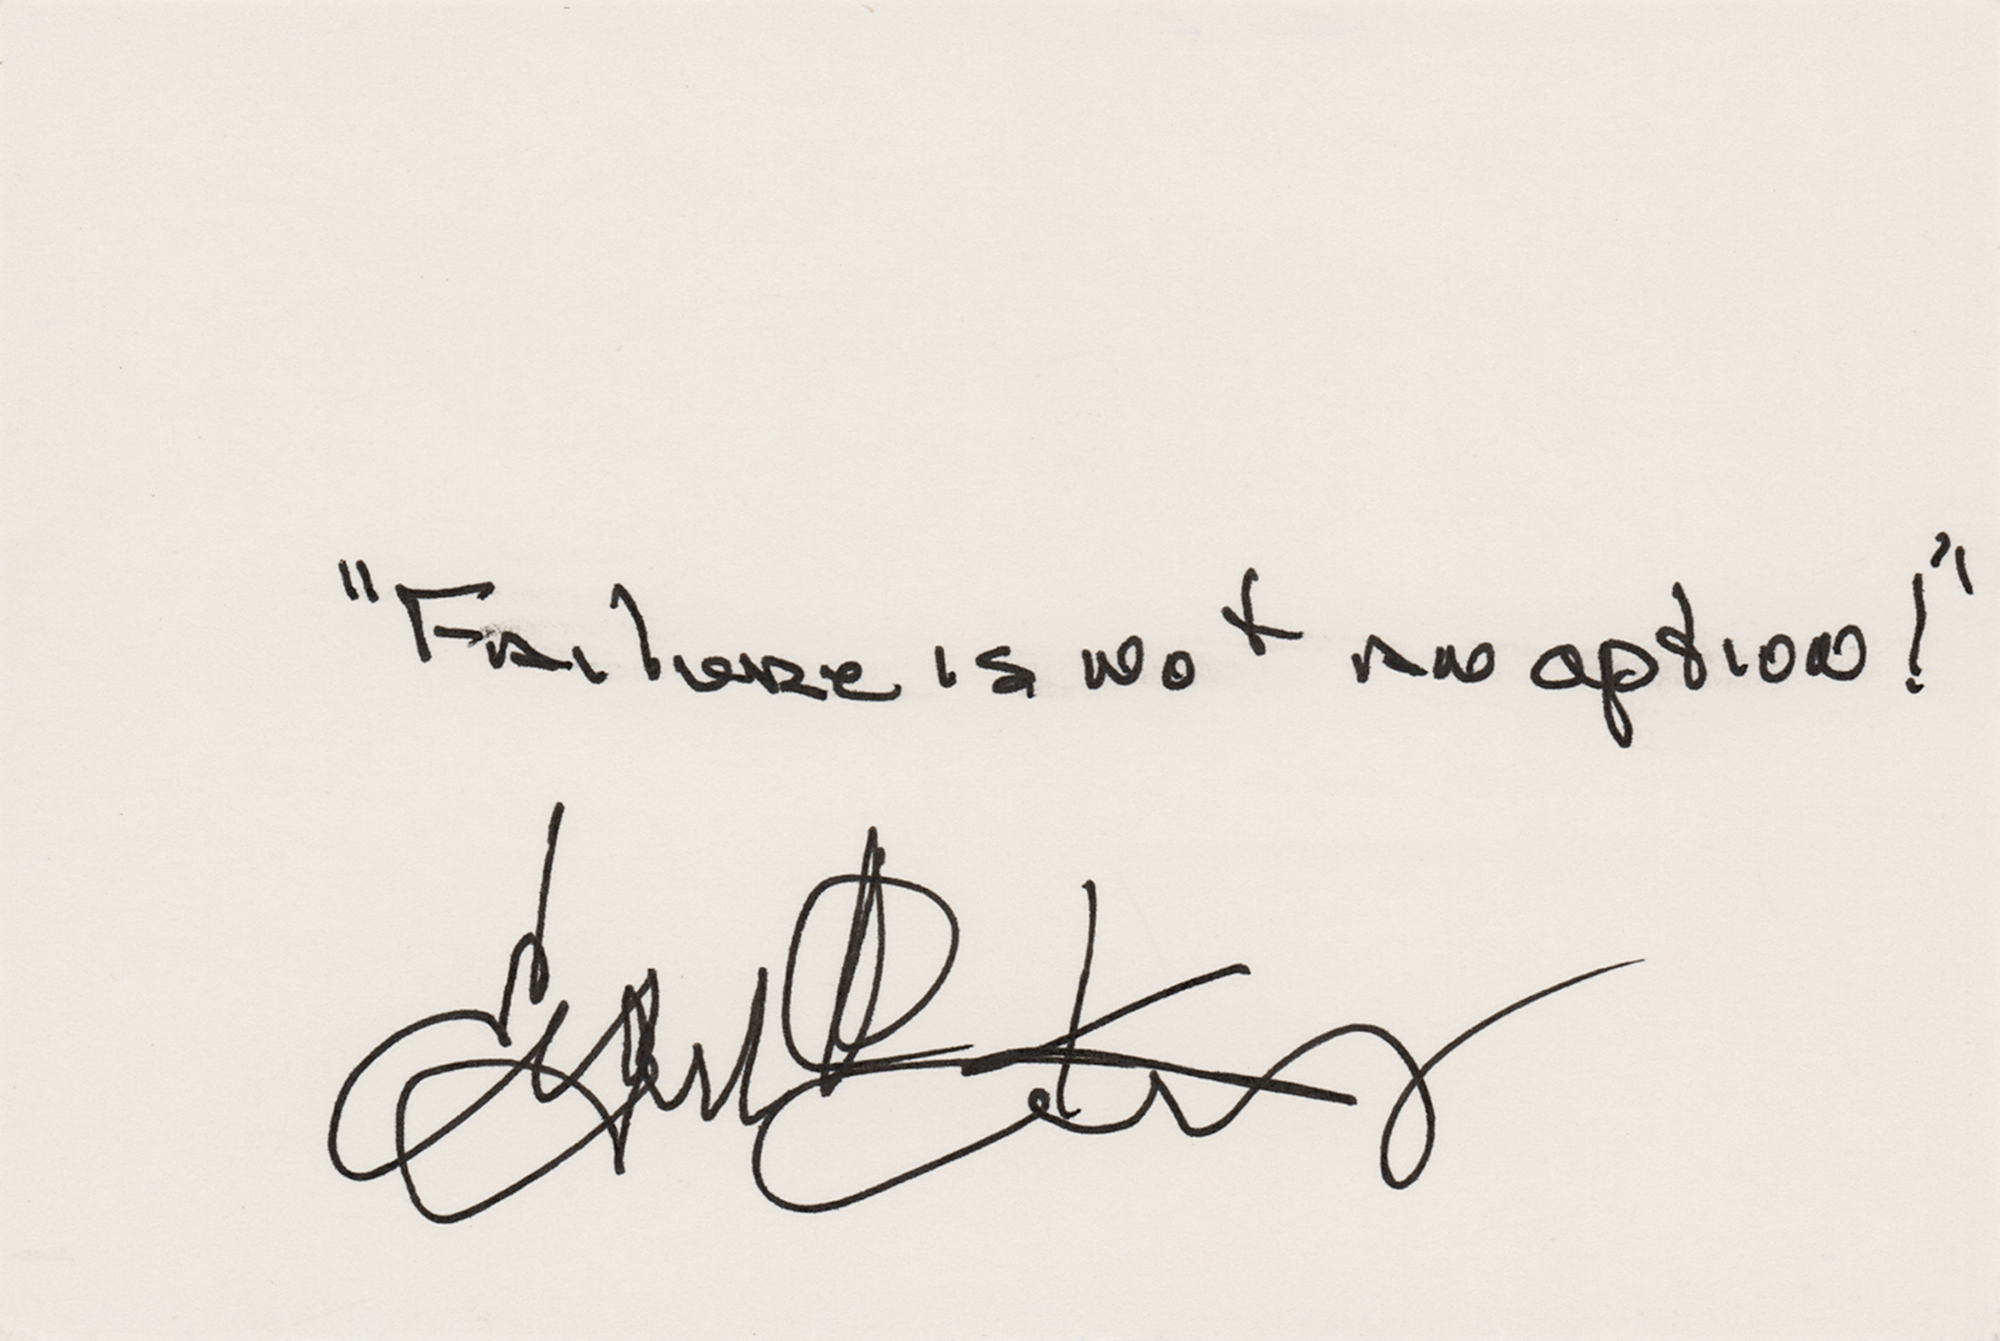 "Failure is not an option!"